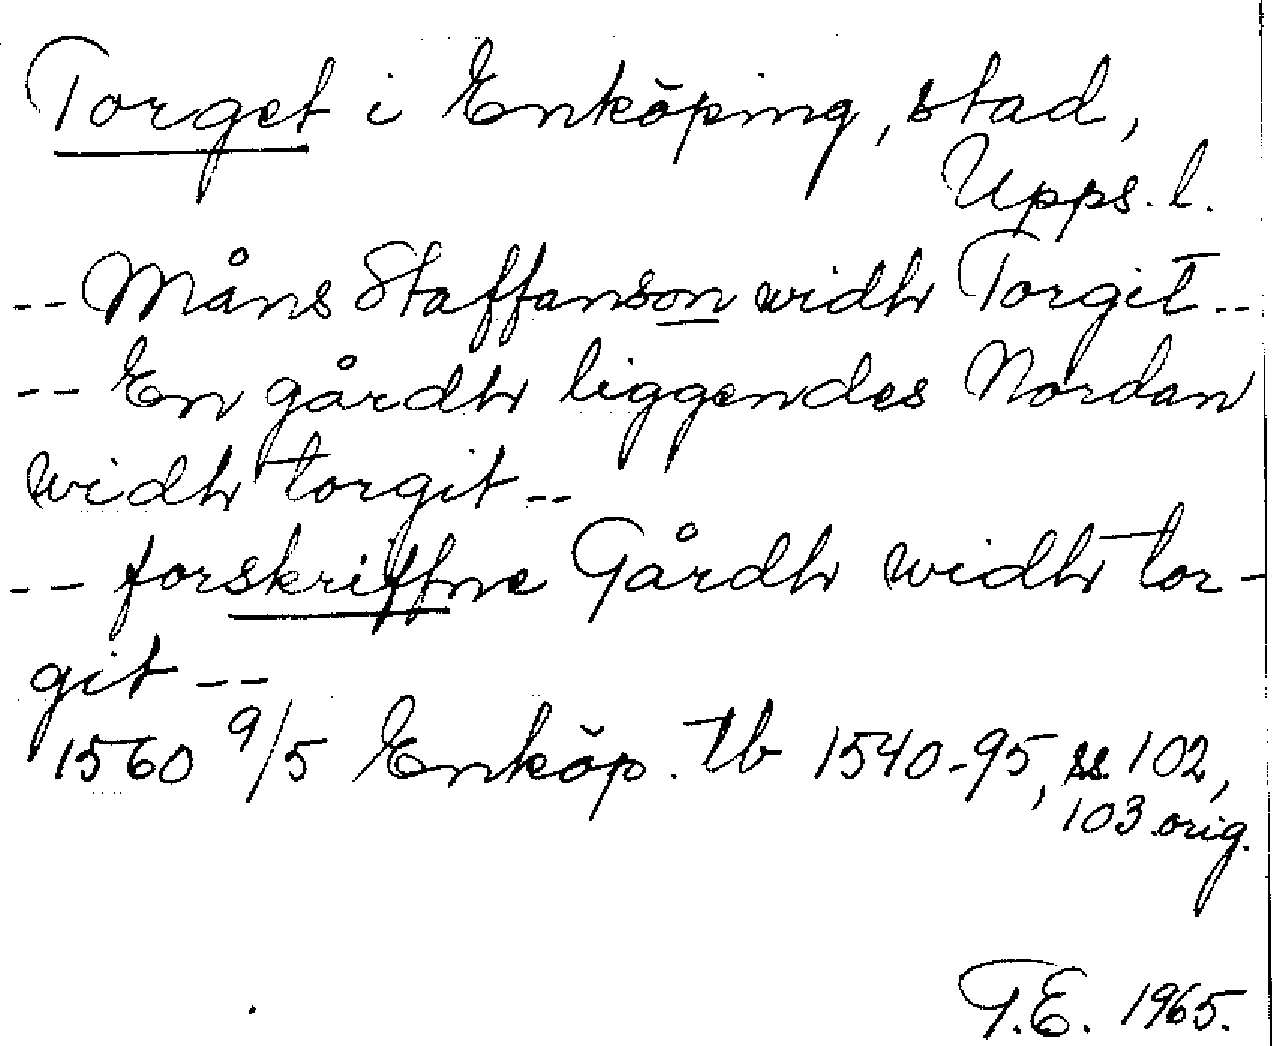 Torget i Enköping, stad,
Upps. l.
-- Måns Staffanson widh Torgit --
-- En gårdh liggendes Nordan
widh torgit --
-- forskriffne Gårdh widh tor-
git --
1560 9/5 Enköp. tb 1540-95, ss. 102,
103 orig.
T.E. 1965.